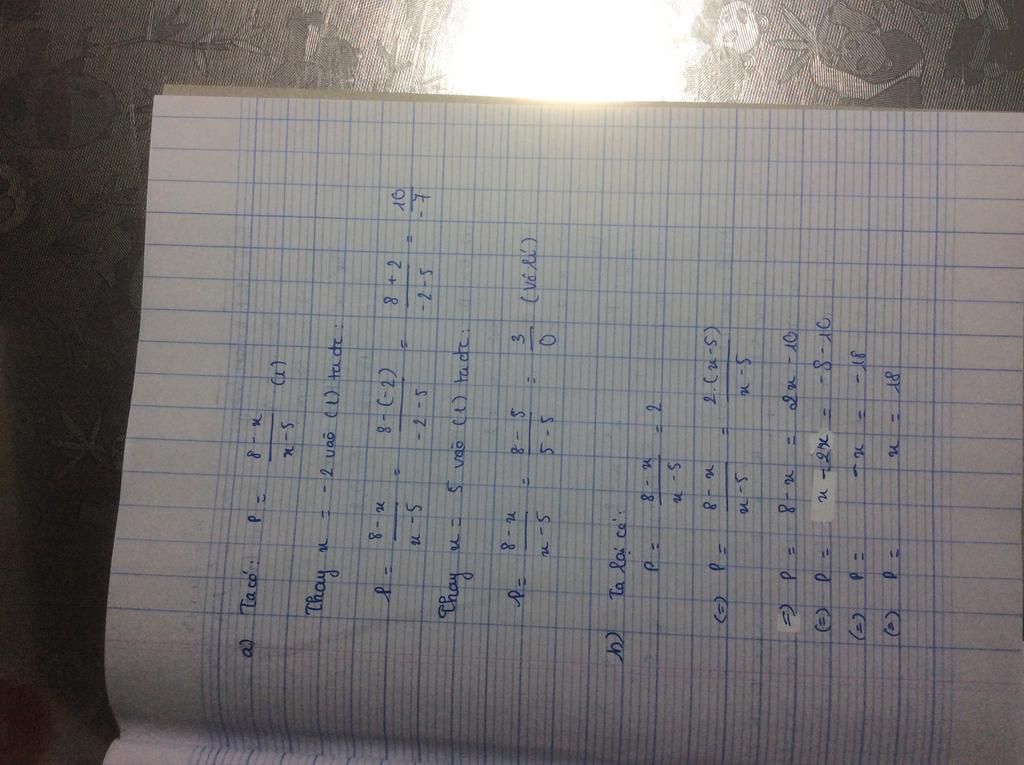 a) Ta có: P = \frac{8-x}{x-5} (1)
Thay x = -2 vào (1) ta đc:
P = \frac{8-x}{x-5} = \frac{8-(-2)}{-2-5} = \frac{8+2}{-2-5} = \frac{10}{-7}
Thay x = 5 vào (1) ta đc:
P = \frac{8-x}{x-5} = \frac{8-5}{5-5} = \frac{3}{0} (Vô lí)
b) Ta lại có:
P = \frac{8-x}{x-5} = 2
(=) P = \frac{8-x}{x-5} = \frac{2(x-5)}{x-5}
=) P = 8-x = 2x-10
(=) P = x-2x = -8-10
(=) P = -x = -18
(=) P = x = 18